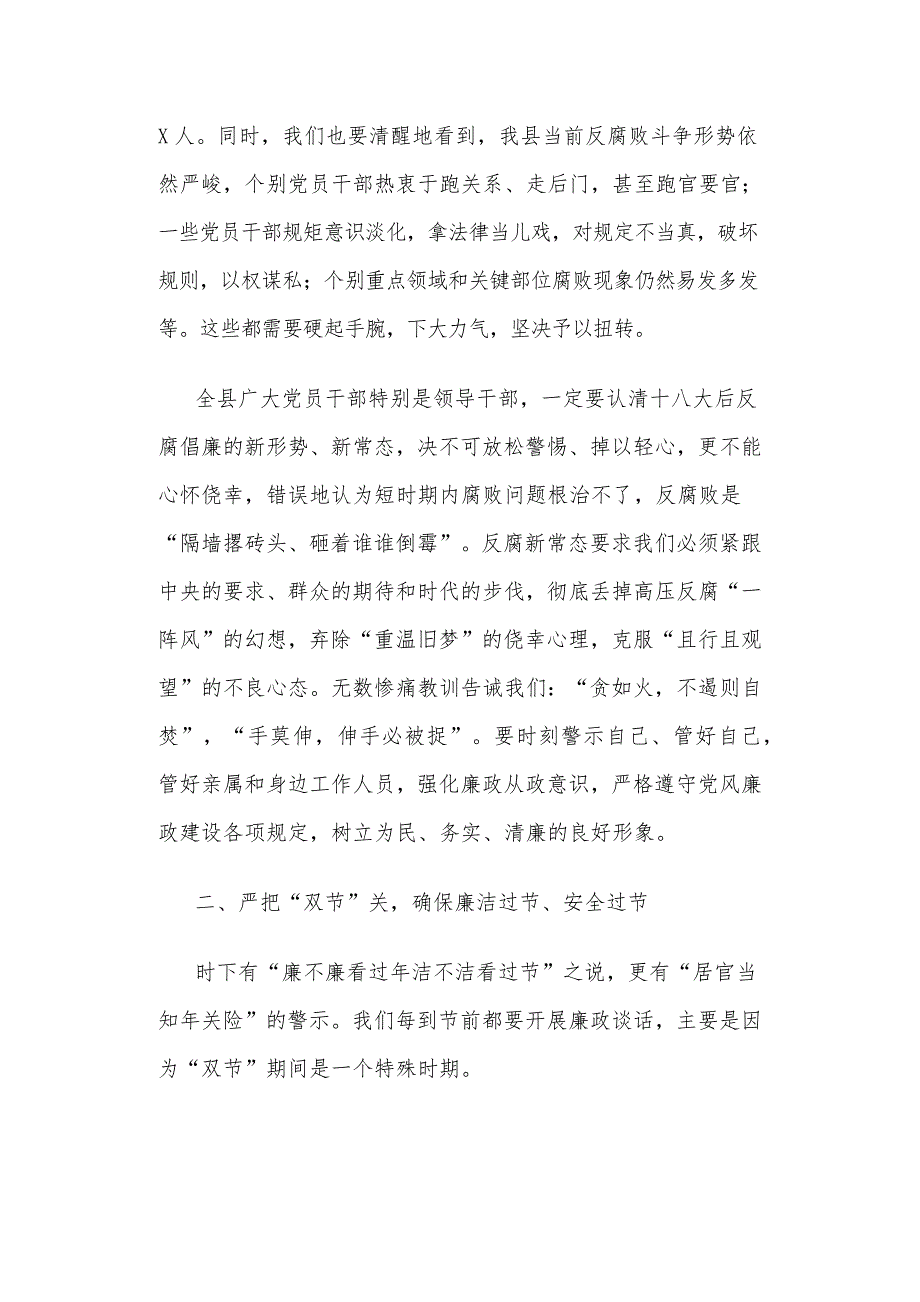 X人。同时，我们也要清醒地看到，我县当前反腐败斗争形势依
然严峻，个别党员干部热衷于跑关系、走后门，甚至跑官要官；
一些党员干部规矩意识淡化，拿法律当儿戏，对规定不当真，破坏
规则，以权谋私；个别重点领域和关键部位腐败现象仍然易发多发
等。这些都需要硬起手腕，下大力气，坚决予以扭转。
全县广大党员干部特别是领导干部，一定要认清十八大后反
腐倡廉的新形势、新常态，决不可放松警惕、掉以轻心，更不能
心怀侥幸，错误地认为短时期内腐败问题根治不了，反腐败是
“隔墙撂砖头、砸着谁谁倒霉”。反腐新常态要求我们必须紧跟
中央的要求、群众的期待和时代的步伐，彻底丢掉高压反腐“一
阵风”的幻想，弃除“重温旧梦”的侥幸心理，克服“且行且观
望”的不良心态。无数惨痛教训告诫我们：“贪如火，不遏则自
焚”，“手莫伸，伸手必被捉”。要时刻警示自己、管好自己，
管好亲属和身边工作人员，强化廉政从政意识，严格遵守党风廉
政建设各项规定，树立为民、务实、清廉的良好形象。
二、严把“双节”关，确保廉洁过节、安全过节
时下有“廉不廉看过年洁不洁看过节”之说，更有“居官当
知年关险”的警示。我们每到节前都要开展廉政谈话，主要是因
为“双节”期间是一个特殊时期。